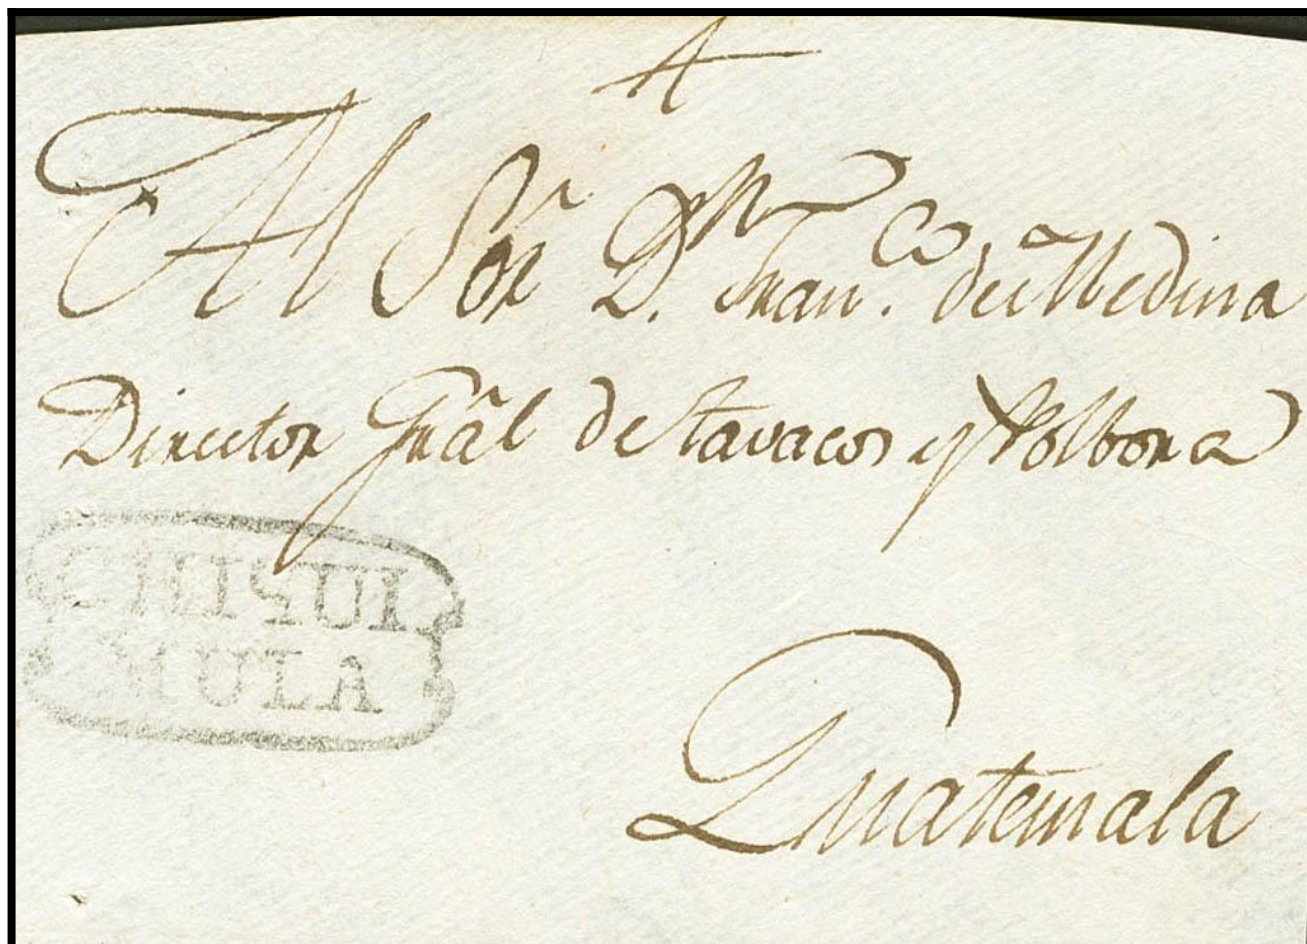 4
Al Sõr D.n Fran.co de Medina
Director Grãl de tavacos y Polbora
CHIQUI
MULA
Guatemala